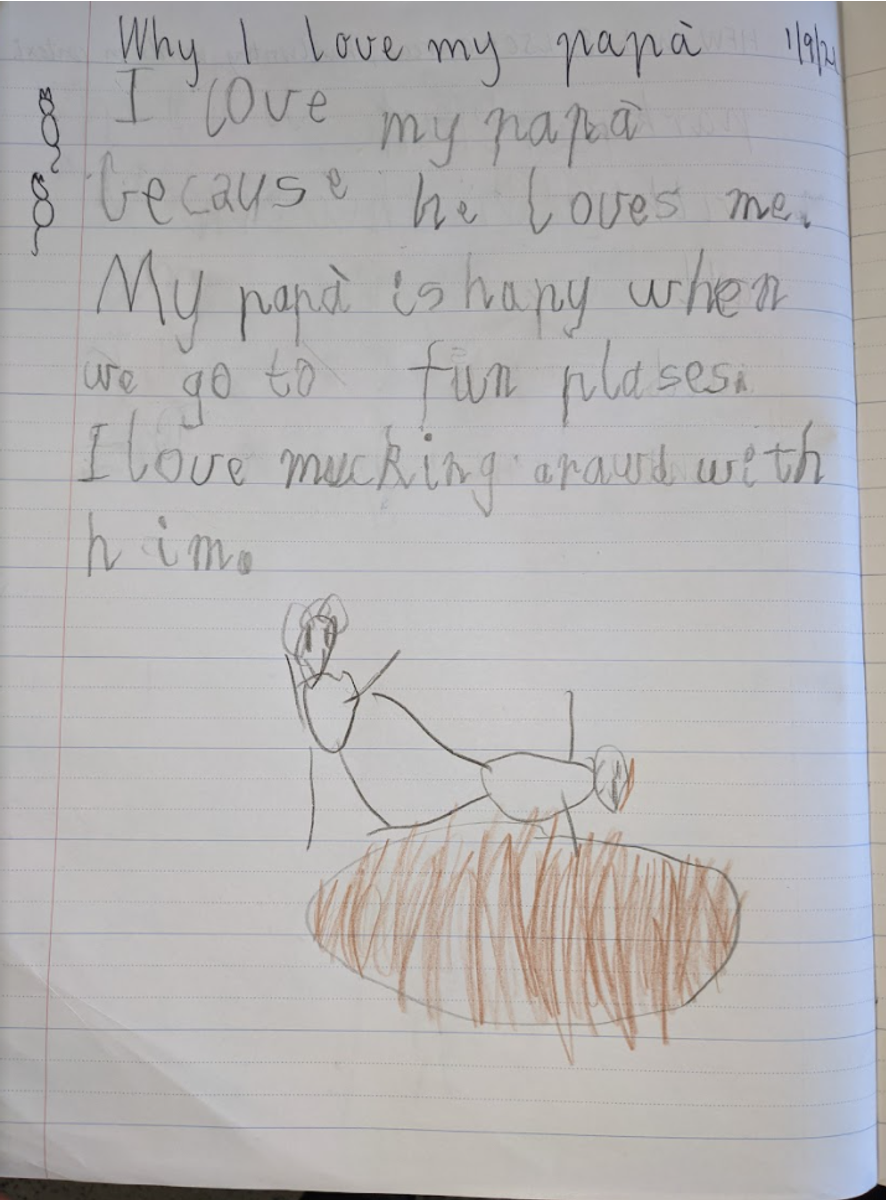 Why I love my papà 1/9/21
I love my papà
because he loves me.
My papà is hapy when
we go to fun plases.
I love mucking araund with
him.